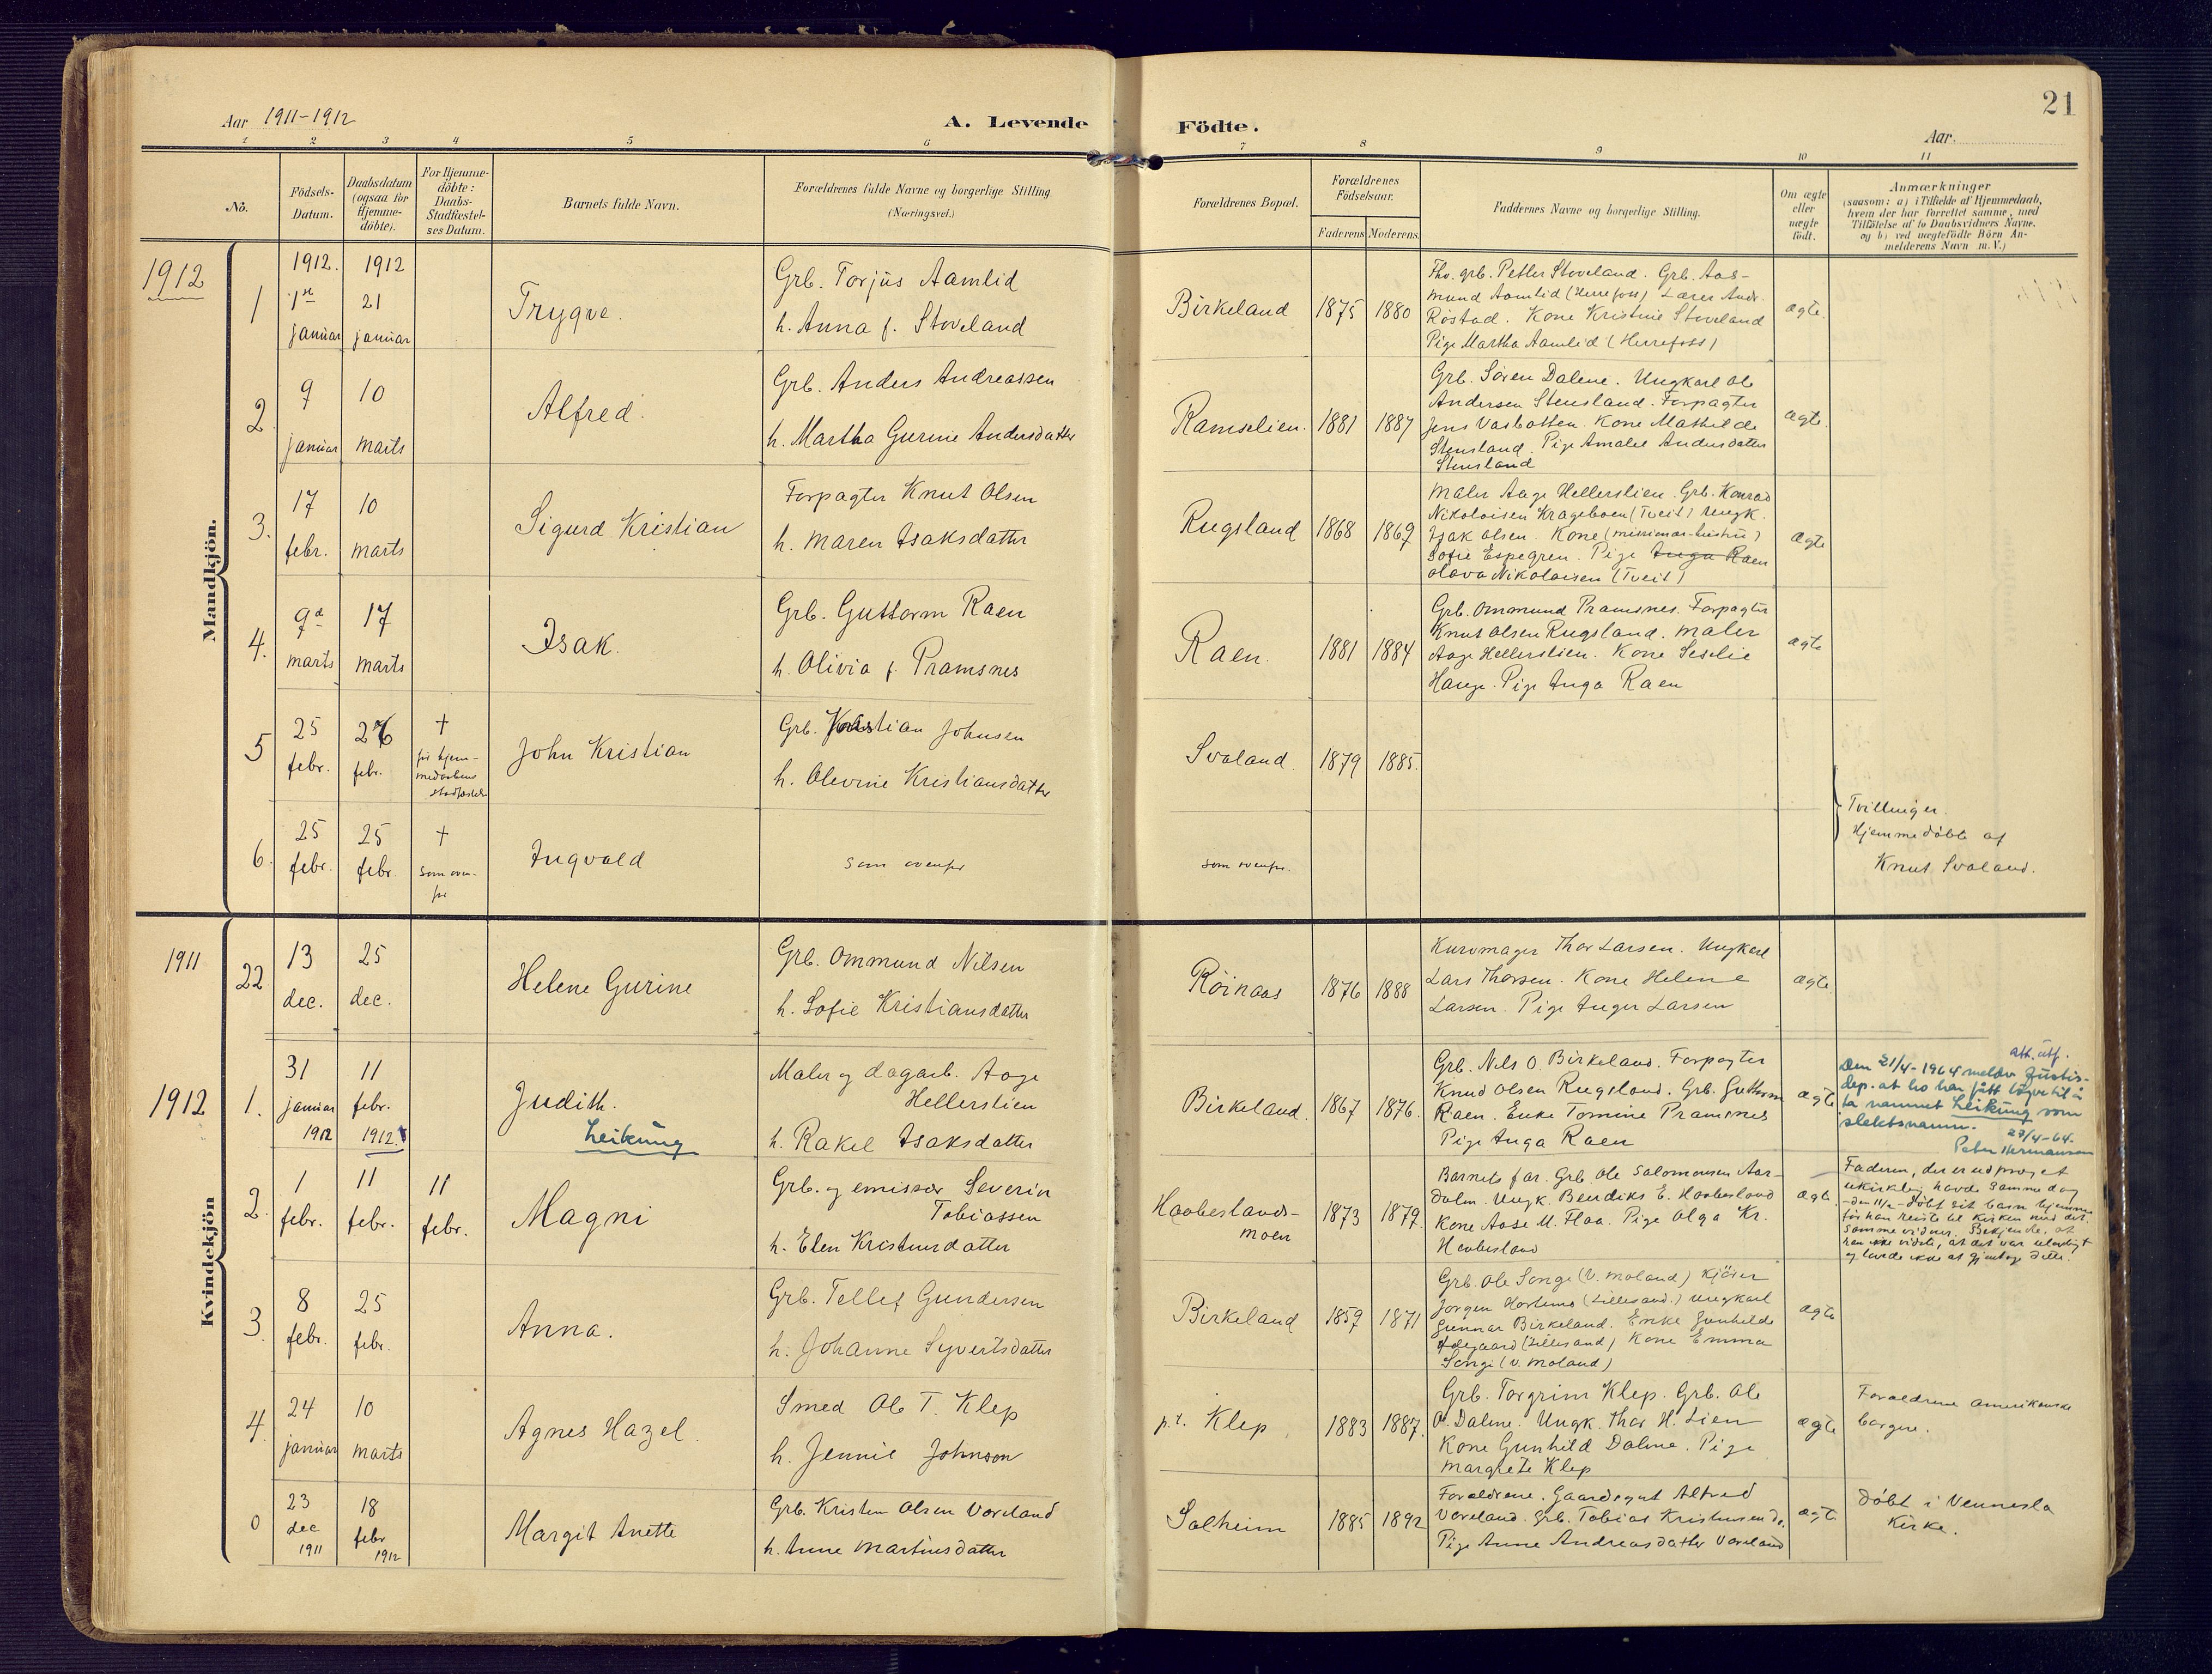 21
Aar 1911-1912
A. Levende
Födte.
Aar.
1 2 3 4 5 6 7 8 9 10 11
No.
Födsels-
Datum.
Daabsdatum
(ogsaa for
Hjemme-
döbte).
For Hjemme-
döbte:
Daabs-
Stadfæstel-
ses Datum.
Barnets fulde Navn.
Forældrenes fulde Navne og borgerlige Stilling
(Næringsvei.)
Forældrenes Bopæl.
Forældrenes
Födselsaar.
Faderens Moderens
Faddernes Navne og borgerlige Stilling.
Om ægte
eller
uægte
födt.
Anmærkninger
(saasom: a) i Tilfælde af Hjemmedaab,
hvem der har forrettet samme, med
Tilföielse af to Daabsvidners Navne.
og b) ved uægtefödte Börn An-
melderens Navn m. V.)
Mandkjön.
1912
1
1912.
1ste
januar
1912
21
januar
Trygve.
Grb. Torjus Aamlid
h. Anna f. Stoveland
Birkeland
1875
1880
Fhv. grb. Petter Stoveland. Grb. Aas-
mund Aamlid (Herrefoss) Lærer Andr.
Röstad. Kone Kristine Stoveland
Pige Martha Aamlid (Herrefoss)
ægte.
2
9
januar
10
marts
Alfred.
Grb. Anders Andreassen
h. Martha Gurine Andersdatter
Ramselien.
1881
1887
Grb. Sören Dalene. Ungkarl Ole
Andersen Stensland. Forpagter
Jens Vasbotten. Kone Mathilde
Stensland. Pige Amalie Andersdatter
Stensland
ægte.
3.
17
febr.
10
marts
Sigurd Kristian
Forpagter Knut Olsen
h. Maren Isaksdatter
Rugsland
1868
1869
Maler Aage Hellerslien. Grb. Konrad
Nikolaisen Krageboen (Tveit) Ungk.
Isak Olsen. Kone
Sofie Espegren. Pige Inga Raen
Olava Nikolaisen (Tveit)
ægte
4.
9de
marts
17
marts
Isak.
Grb. Guttorm Raen
h. Olivia f. Pramsnes
Raen.
1881
1884
Grb. Ommund Pramsnes. Forpagter
Knut Olsen Rugsland. Maler
Aage Hellerslien. Kone Seselie
Hauge. Pige Inga Raen
ægte
5
25
febr.
26
febr.
+
før hjem-
medaabens
stadfæstelse
John Kristian
Grb. Kristian Johnsen
h. Olevine Kristiansdatter
Svaland.
1879
1885.
6.
25
febr.
25
febr.
+
som oven-
for
Ingvald
som ovenfor
som ovenfor.
Tvillinger.
Hjemmedöbte af
Knut Svaland.
Kvindekjön
1911
22
13
dec.
25
dec.
Helene Gurine
Grb. Ommund Nilsen
h. Sofie Kristiansdatter
Röinaas
1876
1888
Kurvmager Thor Larsen. Ungkarl
Lars Thorsen. Kone Helene
Larsen. Pige Inger Larsen
ægte.
1912
1.
31
januar
1912
11
febr.
1912.
Judith.
Leikung
Maler og dagarb. Aage
Hellerslien
h. Rakel Isaksdatter
Birkeland.
1867
1876.
Grb. Nils O. Birkeland. Forpagter
Knud Olsen Rugsland. Grb. Guttorm
Raen. Enke Tomine Pramsnes
Pige Inga Raen
ægte
att. utf.
Den 21/4-1964 melder Justis-
dep. at ho har fått løyve til å
ta namnet Leikung som
slektsnamn.
27/4-64.
Peter Hermansen
2.
1
febr.
11
febr.
11
febr.
Magni
Grb. og emissær Severin
Tobiassen
h. Elen Kristensdatter
Haabeslands-
moen
1873
1879.
Barnets far. Grb. Ole Salomonsen Aar-
dalen. Ungk. Bendiks E. Haabesland
Kone Aase M. Flaa. Pige Olga Kr.
Haabesland
ægte.
Faderen, der er udpræget
ukirkelig havde samme dag
-den 11/2- döbt sit barn hjemme
før han reiste til kirken med det.
samme vidner. Bekjendte, at
han ikke vidste, at det var ulovligt
og lovede ikke at gjentage dette.
3.
8
febr.
25
febr.
Anna.
Grb. Tellef Gundersen
h. Johanne Syvertsdatter
Birkeland
1859
1871
Grb. Ole Songe (V. Moland) Kjöser
Jorgen Hortemo (Lillesand.) Ungkarl
Gunnar Birkeland. Enke Gunhilde
Ødegaard (Lillesand) Kone Emma
Songe (V. Moland)
ægte
4.
24
januar
10
marts
Agnes Hazel.
Smed Ole T. Klep
h. Jennie Johnson
p.t. Klep
1883
1887.
Grb. Torgrim Klep. Grb. Ole
O. Dalene. Ungk. Thor H. Lien
Kone Gunhild Dalene. Pige
Margrete Klep
ægte
Forældrene amerikanske
borgere.
0
23
dec
1911
18
febr
1912
Margit Anette
Grb. Kristen Olsen Voreland
h. Anne Martinsdatter
Solheim
1885
1892
Forældrene. Gaardsgut Alfred
Voreland. Grb. Tobias Kristensen do.
Pige Anne Andreasdatter Voreland
ægte
Döbt i Vennesla
Kirke.